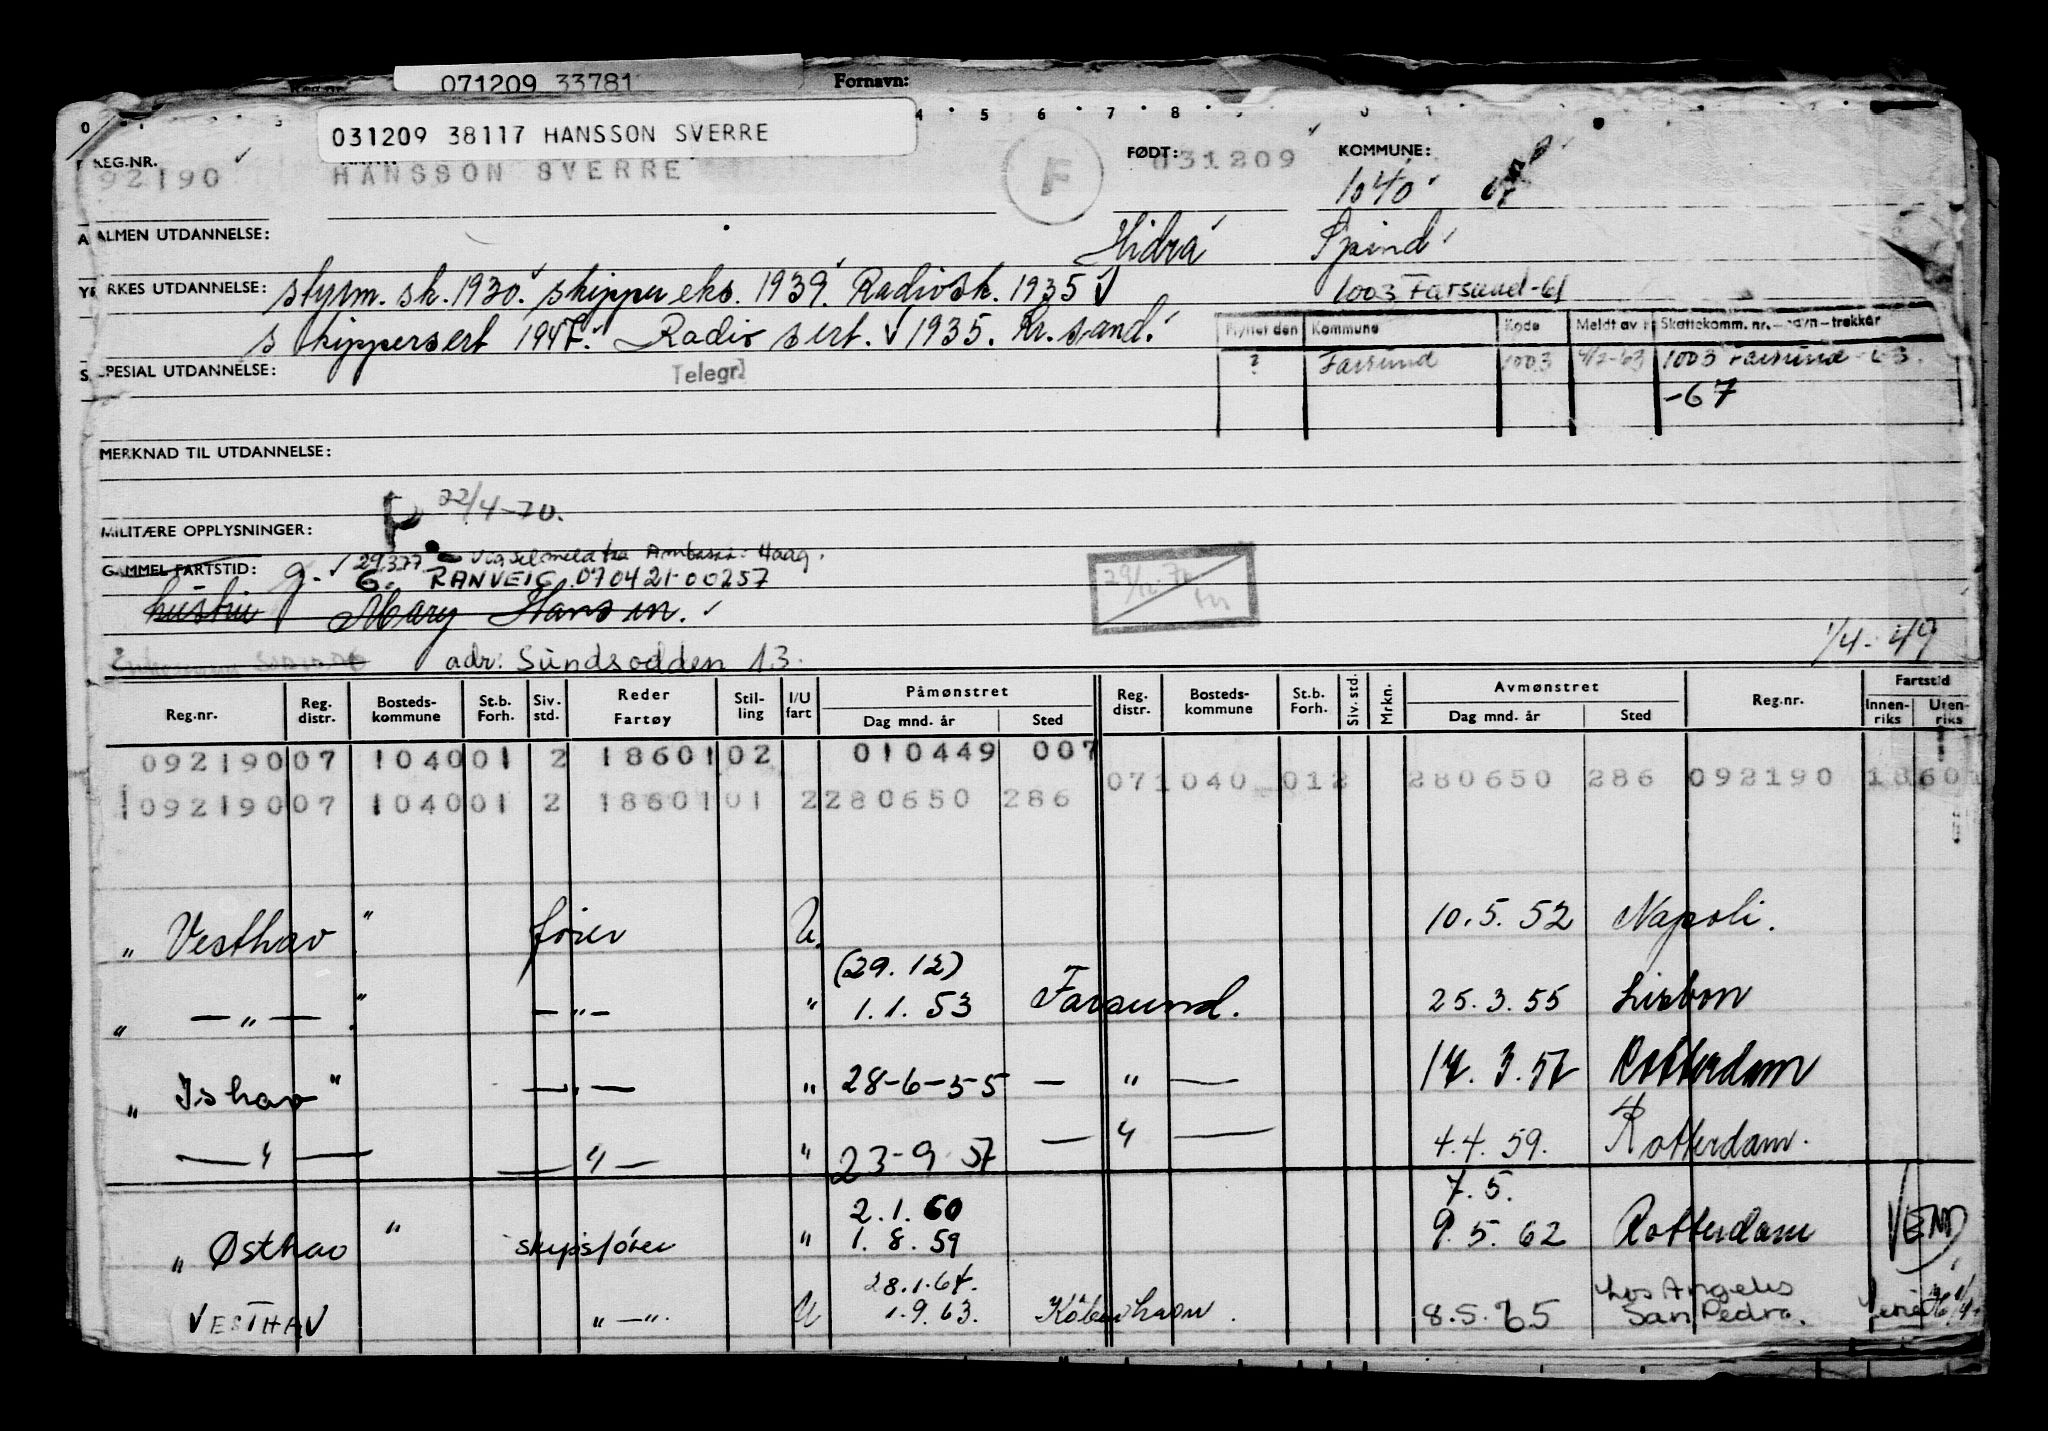 071209 33781 Fornavn:
031209 38117 HANSSON SVERRE
0 4 5 6 7 8
REG.NR. FØDT: KOMMUNE:
92190 HANSSON SVERRE F 031209 1040 07
ALMEN UTDANNELSE: Hidra Spind
YRKES UTDANNELSE: styrm. sk. 1930. skipper eks. 1939. Radiosk. 1935
1003 Farsund-61
skippersert 1947. Radio sert. 1935. Kr.sand.
Flyttet den Kommune Kode Meldt av Skattekomm. nr.—navn—trekkår
SPESIAL UTDANNELSE: Telegr.
? Farsund 1003 4/2-63 1003 Farsund-63.
-67
MERKNAD TIL UTDANNELSE:
22/4-70.
MILITÆRE OPPLYSNINGER:
29377 Vigselmeld fra Ambassa: Haag.
GAMMEL FARTSTID: g. G. RANVEIG 070421-00257
hustru Mary Hansson.
29/12-70
adr: Sundsodden 13.
1/4-49
Reg.nr. Reg. distr. Bostedskommune St.b. Forh. Siv. std. Reder Fartøy Stilling I/U fart Påmønstret Reg. distr. Bostedskommune St.b. Forh. Siv. std. Mrkn. Avmønstret Reg.nr. Fartstid
Dag mnd. år Sted Dag mnd. år Sted Innenriks Utenriks
092190 07 1040 01 2 18601 02 010449 007
071040 012 280650 286 092190 18601
1 092190 07 1040 01 2 18601 01 2 280650 286
" Vesthav " fører U. 10.5.52 Napoli.
(29.12)
" — " — " — " — " 1.1.53 Farsund. 25.3.55 Lisbon
" Ishav " — " — " 28-6-55 — " — 17.3.57 Rotterdam
— " — — " — " 23-9-57 — " — 4.4.59. Rotterdam.
2.1.60 7.5.
" Østhav " skipsfører " 1.8.59 9.5.62 Rotterdam VEND
28.1.64. Los Angeles
VESTHAV " — " U 1.9.63. København. 8.5.65 San Pedro.